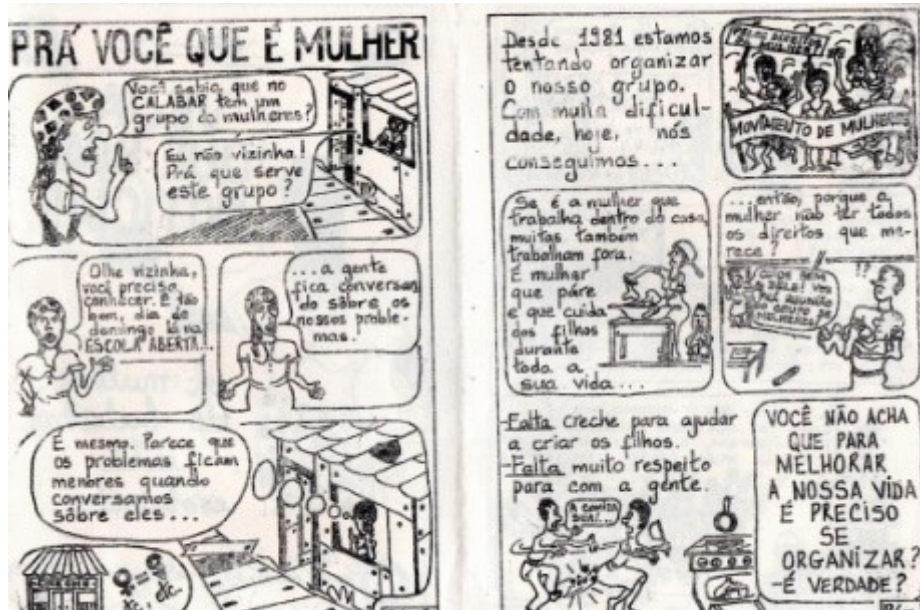 PRÁ VOCÊ QUE É MULHER
Você sabia que no
CALABAR tem um
grupo de mulheres?
Eu não vizinha!
Prá que serve
este grupo?
Olhe vizinha,
você precisa
conhecer. É tão
bom, dia de
domingo lá na
ESCOLA ABERTA!..
...a gente
fica conversan
do sôbre os
nossos proble-
mas.
É mesmo. Parece que
os problemas ficam
menores quando
conversamos
sôbre eles...
Desde 1981 estamos
tentando organizar
o nosso grupo.
Com muita dificul-
dade, hoje, nós
conseguimos...
MOVIMENTO DE MULHERES
Se é a mulher que
trabalha dentro de casa,
muitas também
trabalham fora.
É mulher
que páre
e que cuida
dos filhos
durante
toda a
sua vida...
...então, porque a
mulher não ter todos
os direitos que me-
rece?
!?
-Falta creche para ajudar
a criar os filhos.
-Falta muito respeito
para com a gente.
VOCÊ NÃO ACHA
QUE PARA
MELHORAR
A NOSSA VIDA
É PRECISO
SE
ORGANIZAR?
-É VERDADE?